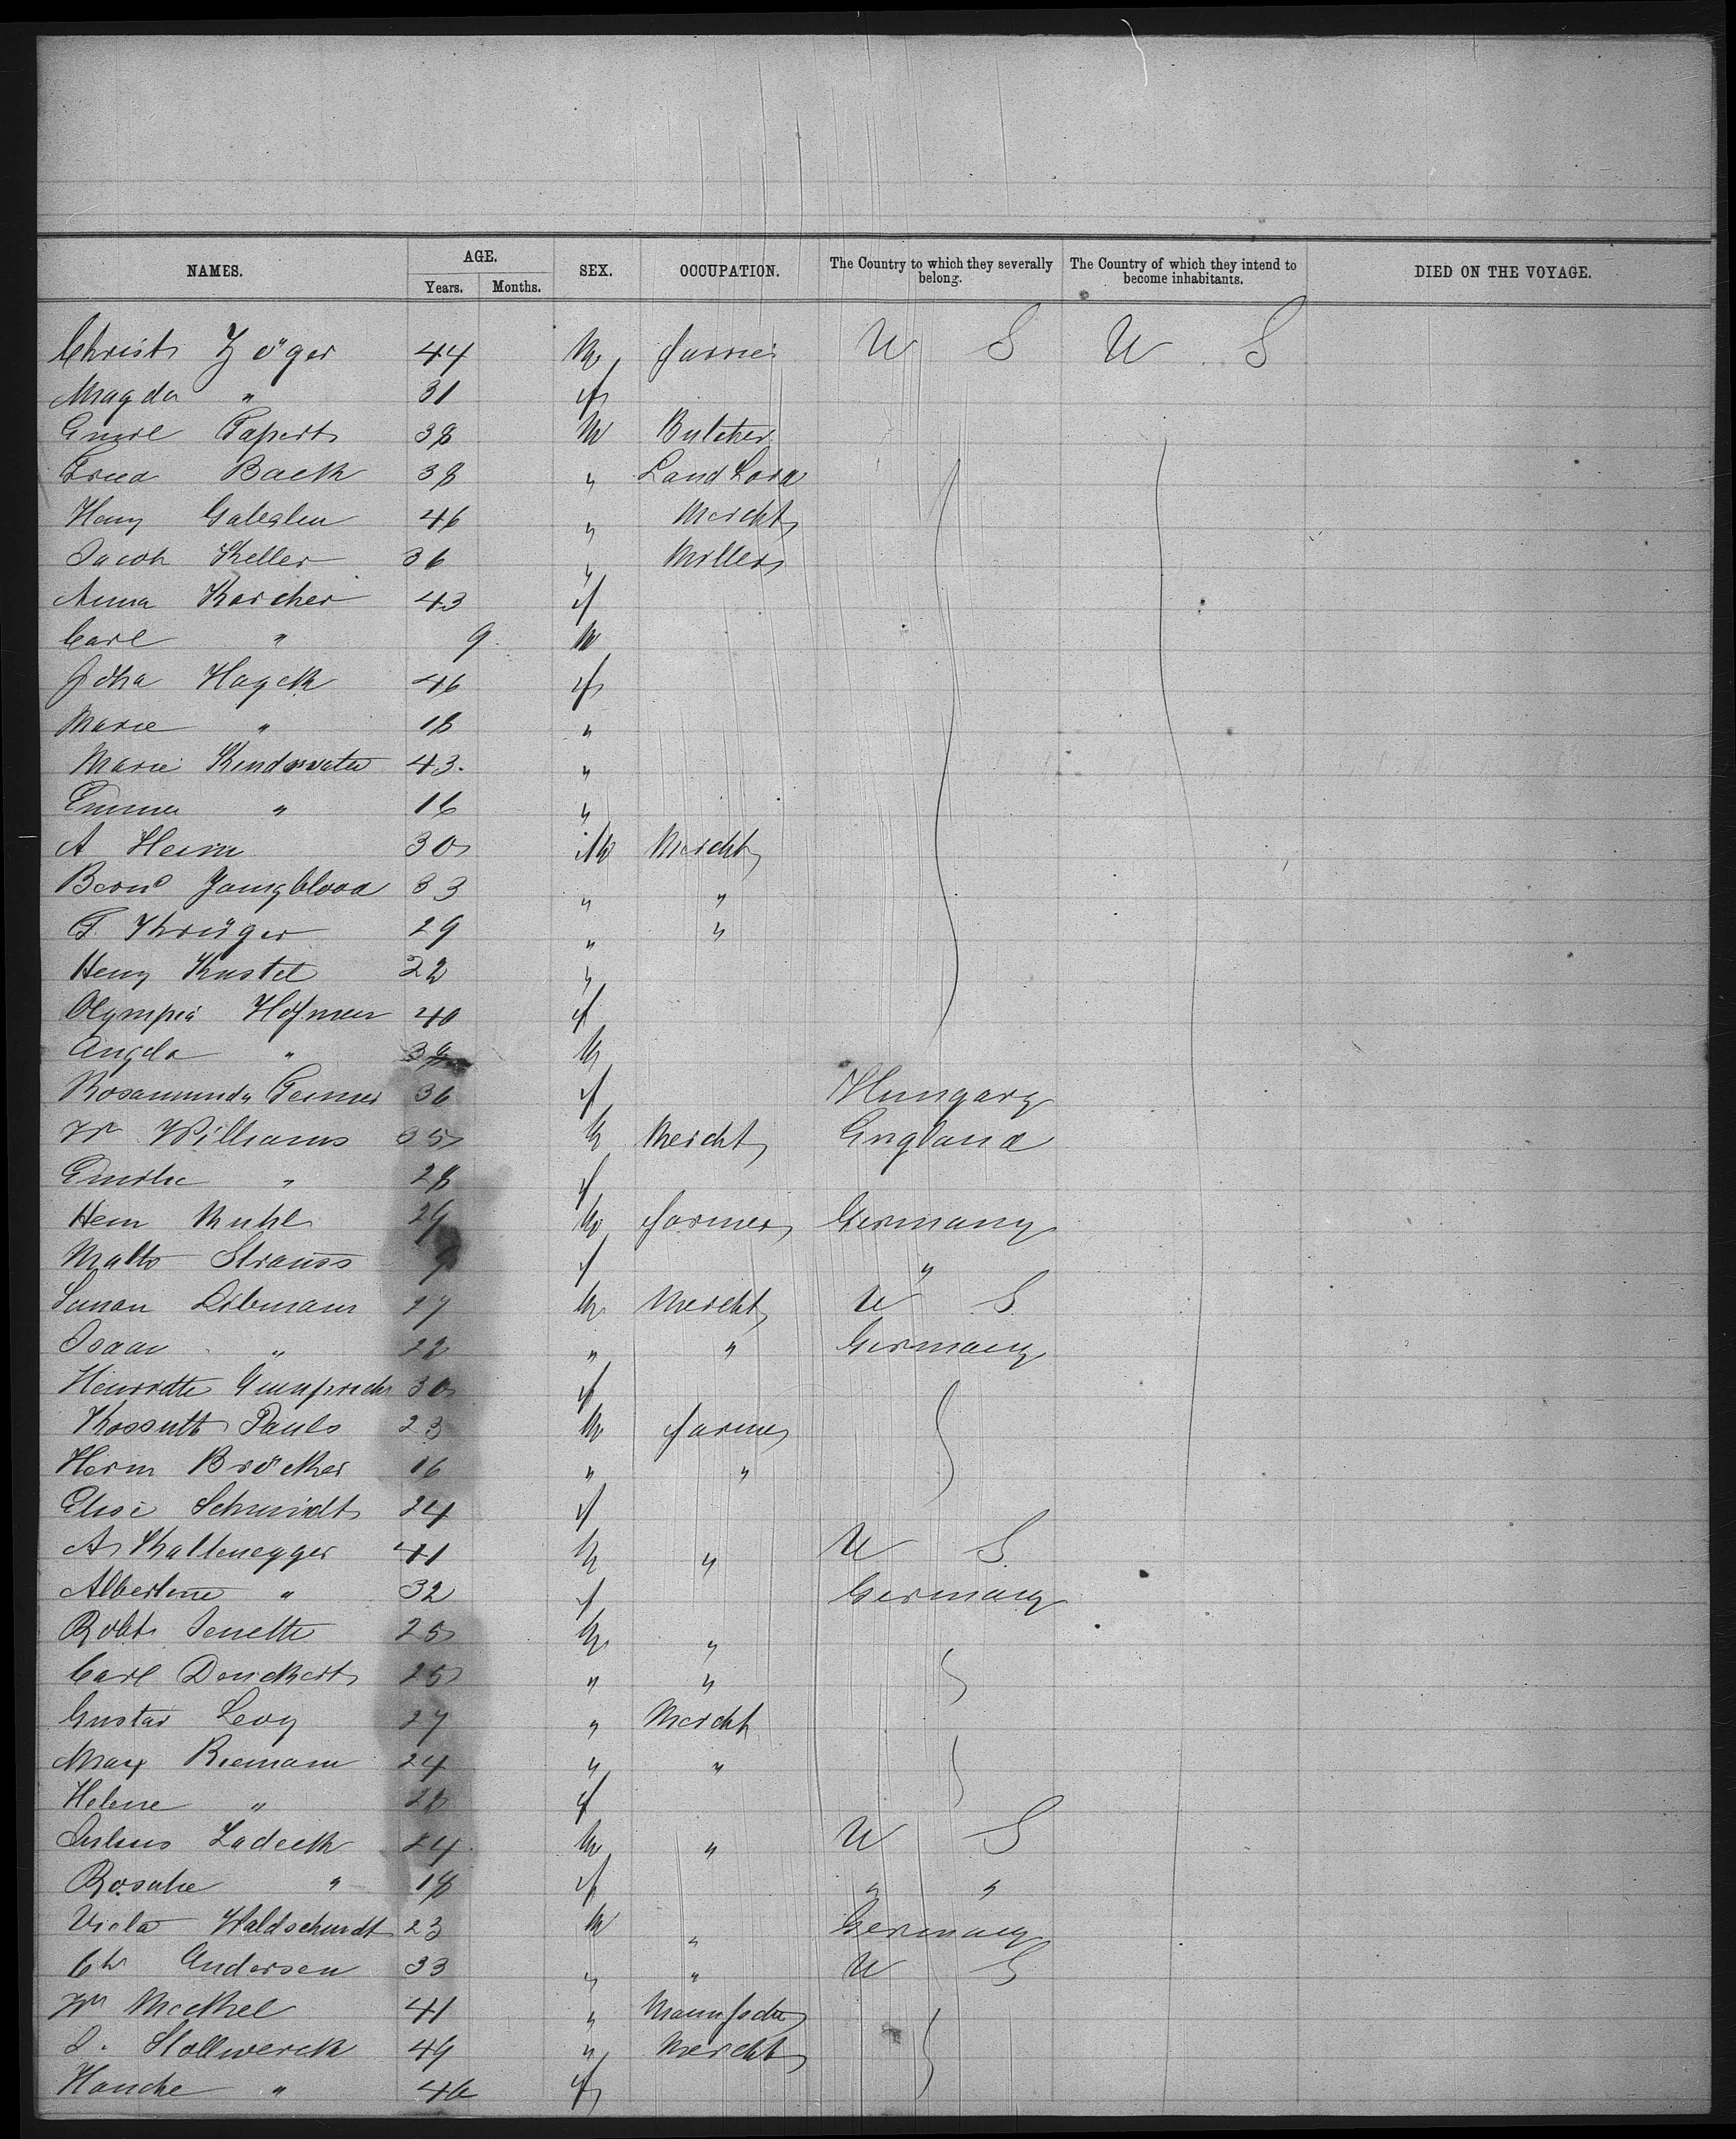 NAMES. AGE. SEX. OCCUPATION. The Country to which they severally belong. The Country of which they intend to become inhabitants. DIED ON THE VOYAGE.
Years. Months.
Christ Zöger 44 M farmer U S U S
Magda " 31 f
Emil Tapert 38 M Butcher
Fried Back 38 " Land Lord
Heny 46 " Mercht
Jacob Keller 36 " Miller
Anna Karcher 43 f
Carl " 9 M
Joha Hayek 46 f
Marie " 18 "
Marie Kindswater 43. "
Emma " 16 "
A Heim 30 M Mercht
Bernd Youngblood 33 " "
F. Krüger 29 " "
Heny Kustel 22 "
Olympia Hofmeer 40 f
Angela " 38 M
Rosamunda 36 f Hungary
W Williams 35 M Mercht England
Emilie " 28 f
Hein Muhl 29 M farmer Germany
Malto Strauss 9 f "
Simon Libmann 27 M Mercht U S
Isaac " 22 " " Germany
Henriette Gumprecht 30 f
Kossuth Pauls 23 M farmer
Herm Bröcker 16 " "
Elise Schmidt 24 f
A Kaltenegger 41 M " U S.
Albertine " 32 f Germany
Robt Senette 25 M "
Carl Denckert 25 " "
Gustav Levy 27 " Mercht
Max Riemann 24 " "
Helene " 28 f
Julius Zadeck 24 M " U S
Rosalie " 18 f " "
Victor Waldschmidt 23 M " Germany
Ch Andersen 33 " " U S
Wm Meckel 41 "
J. Stollwerck 49 " Mercht
Hanche " 46 f